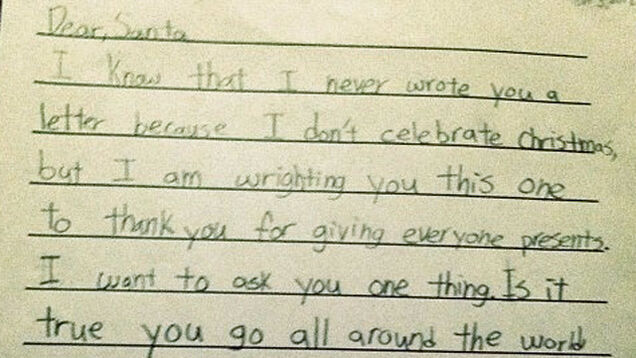 Dear, Santa
I Know that I never wrote you a
letter because I don't celebrate christmas,
but I am wrighting you this one
to thank you for giving everyone presents.
I want to ask you one thing. Is it
true you go all around the world